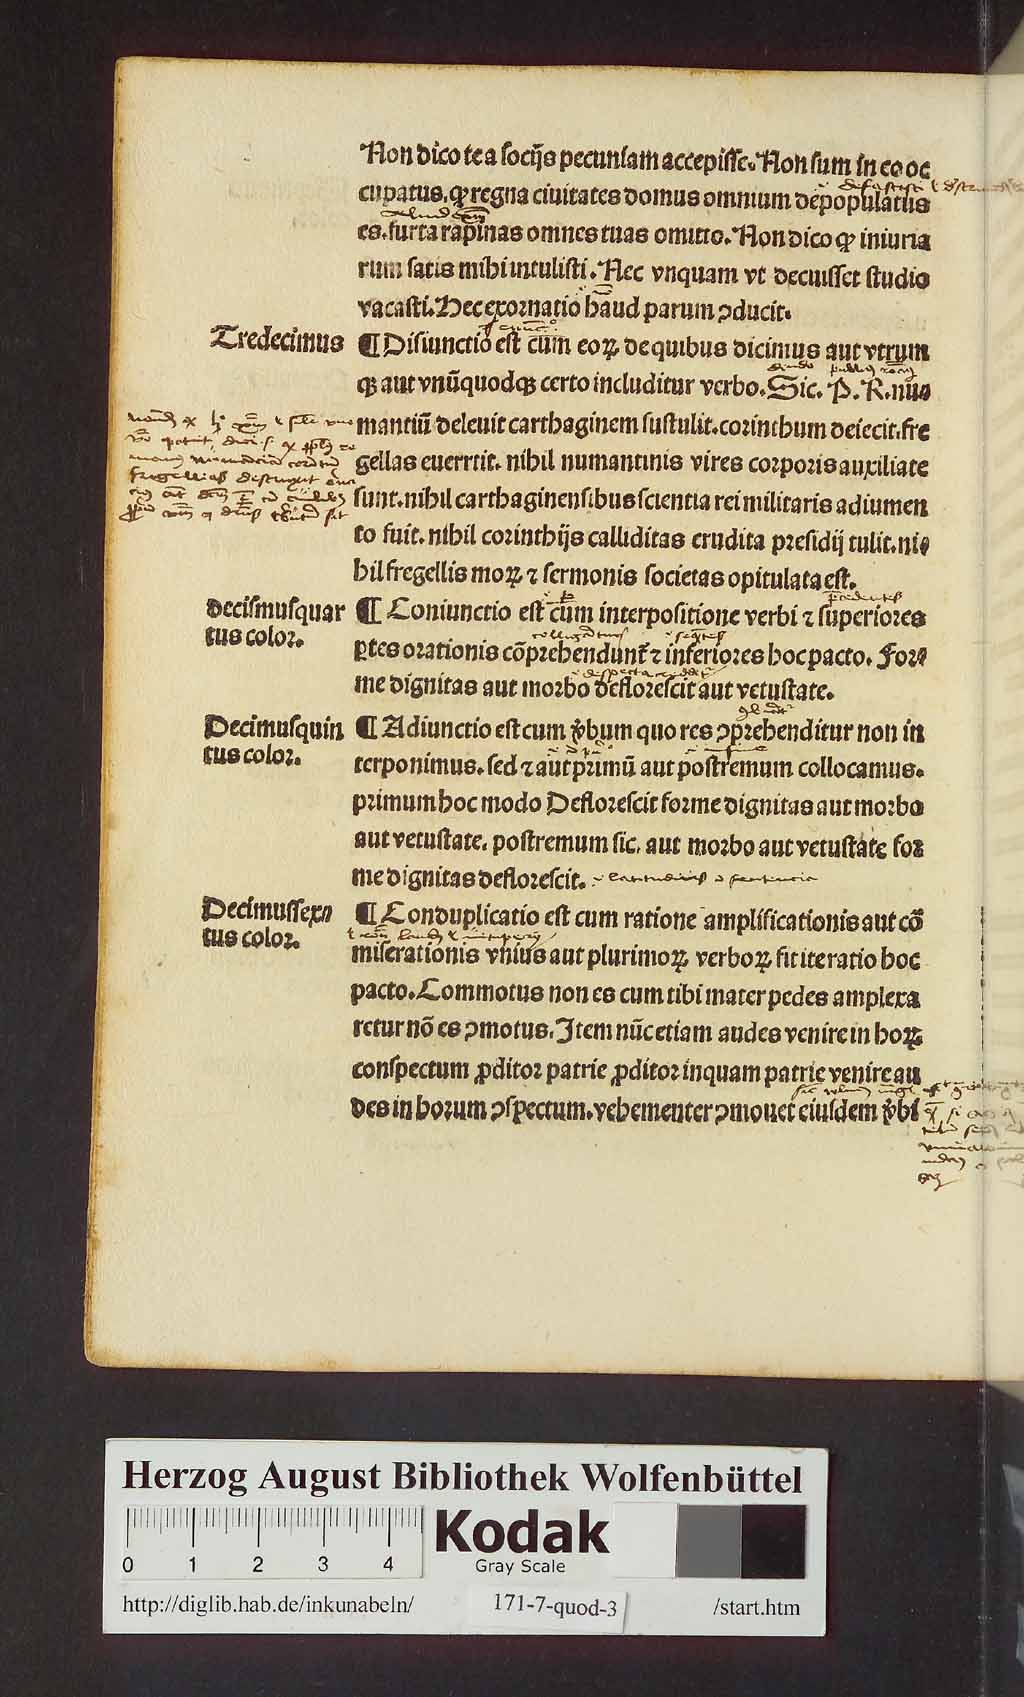 Non dico te a socijs pecuniam accepisse. Non sum in eo oc
cupatus. ꝙ regna ciuitates domus omnium depopulatus
es. furta rapinas omnes tuas omitto. Non dico ꝙ iniuria
rum satis mihi intulisti. Nec vnquam vt decuisset studio
vacasti. Hec exornatio haud parum ↄducit.
Tredecimus
¶ Disiunctio est cum eoꝝ de quibus dicimus aut vtrum
qꝫ aut vnūquodqꝫ certo includitur verbo. Sic. P. R. nu
mantiū deleuit carthaginem sustulit. corinthum deiecit. fre
gellas euerrtit. nihil numantinis vires corporis auxiliate
sunt. nihil carthaginensibus scientia rei militaris adiumen
to fuit. nihil corinthijs calliditas erudita presidij tulit. ni
hil fregellis moꝝ ⁊ sermonis societas opitulata est.
decismusquar
tus color.
¶ Coniunctio est cum interpositione verbi ⁊ superiores
ꝑtes orationis cōprehendunt̄ ⁊ inferiores hoc pacto. For
me dignitas aut morbo deflorescit aut vetustate.
Decimusquin
tus color.
¶ Adiunctio est cum v̓bum quo res ↄprehenditur non in
terponimus. sed ⁊ aut primū aut postremum collocamus.
primum hoc modo Deflorescit forme dignitas aut morbo
aut vetustate. postremum sic. aut morbo aut vetustate for
me dignitas deflorescit.
Decimussex
tus color.
¶ Conduplicatio est cum ratione amplificationis aut cō
miserationis vnius aut plurimoꝝ verboꝝ fit iteratio hoc
pacto. Commotus non es cum tibi mater pedes amplexa
retur nō es ↄmotus. Item nūc etiam audes venire in hoꝝ
conspectum ꝓditor patrie ꝓditor inquam patrie venire au
des in horum ↄspectum. vehementer ↄmouet eiusdem v̓bi
Herzog August Bibliothek Wolfenbüttel
Kodak
Gray Scale
0 1 2 3 4
http://diglib.hab.de/inkunabeln/ 171-7-quod-3 /start.htm